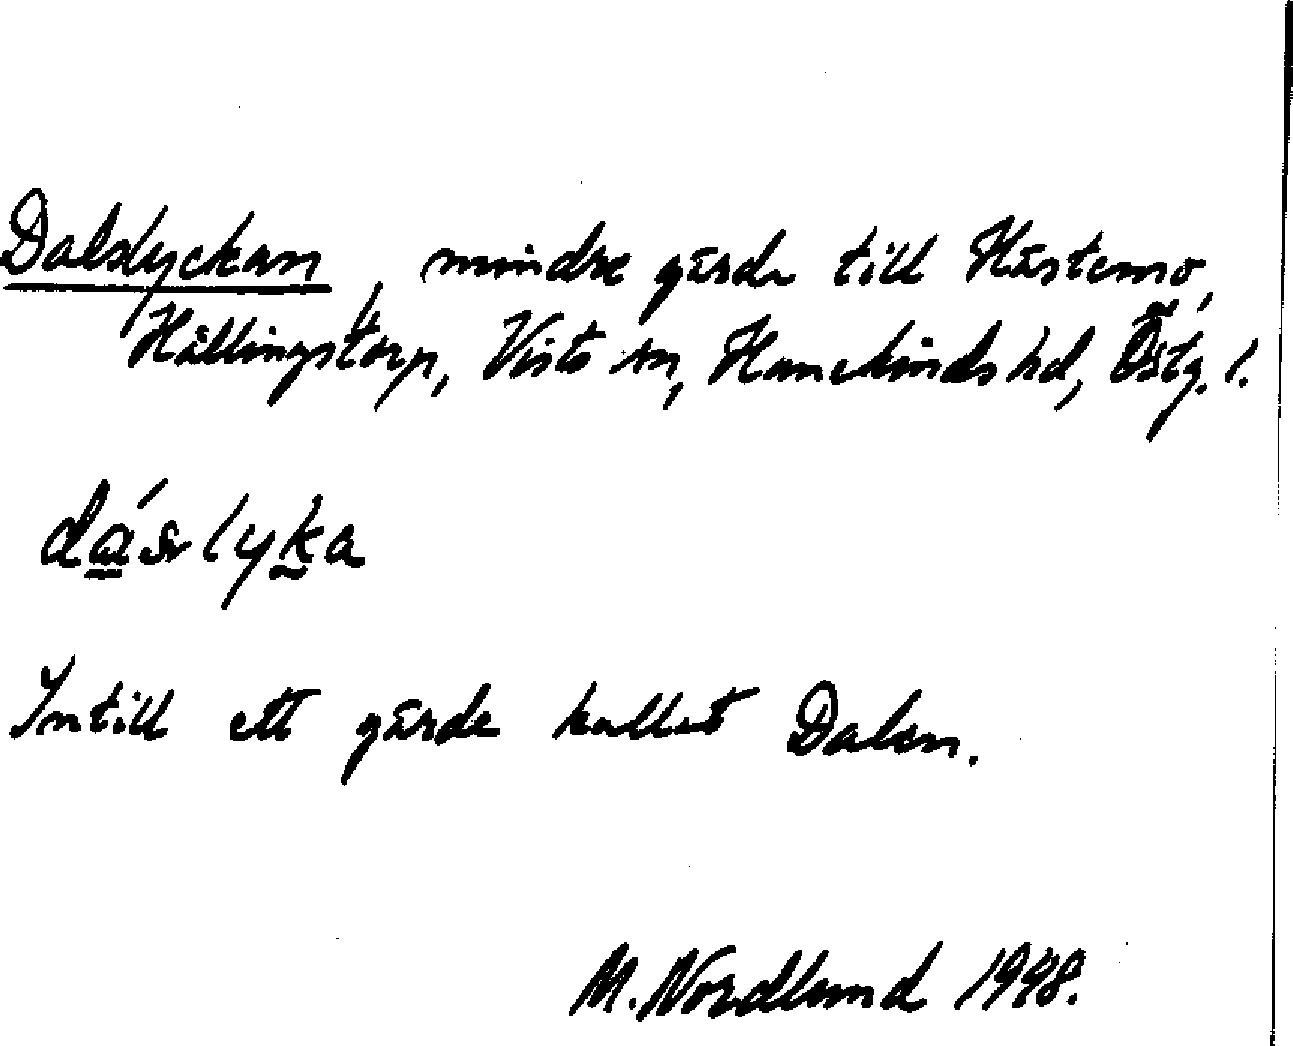 Dalslyckan, mindre gärde till Hästemo,
Hällingstorp, Vists sn, Hanekinds hd, Östg. l.
dáslyka
Intill ett gärde kallat Dalen.
M. Nordlund 1948.